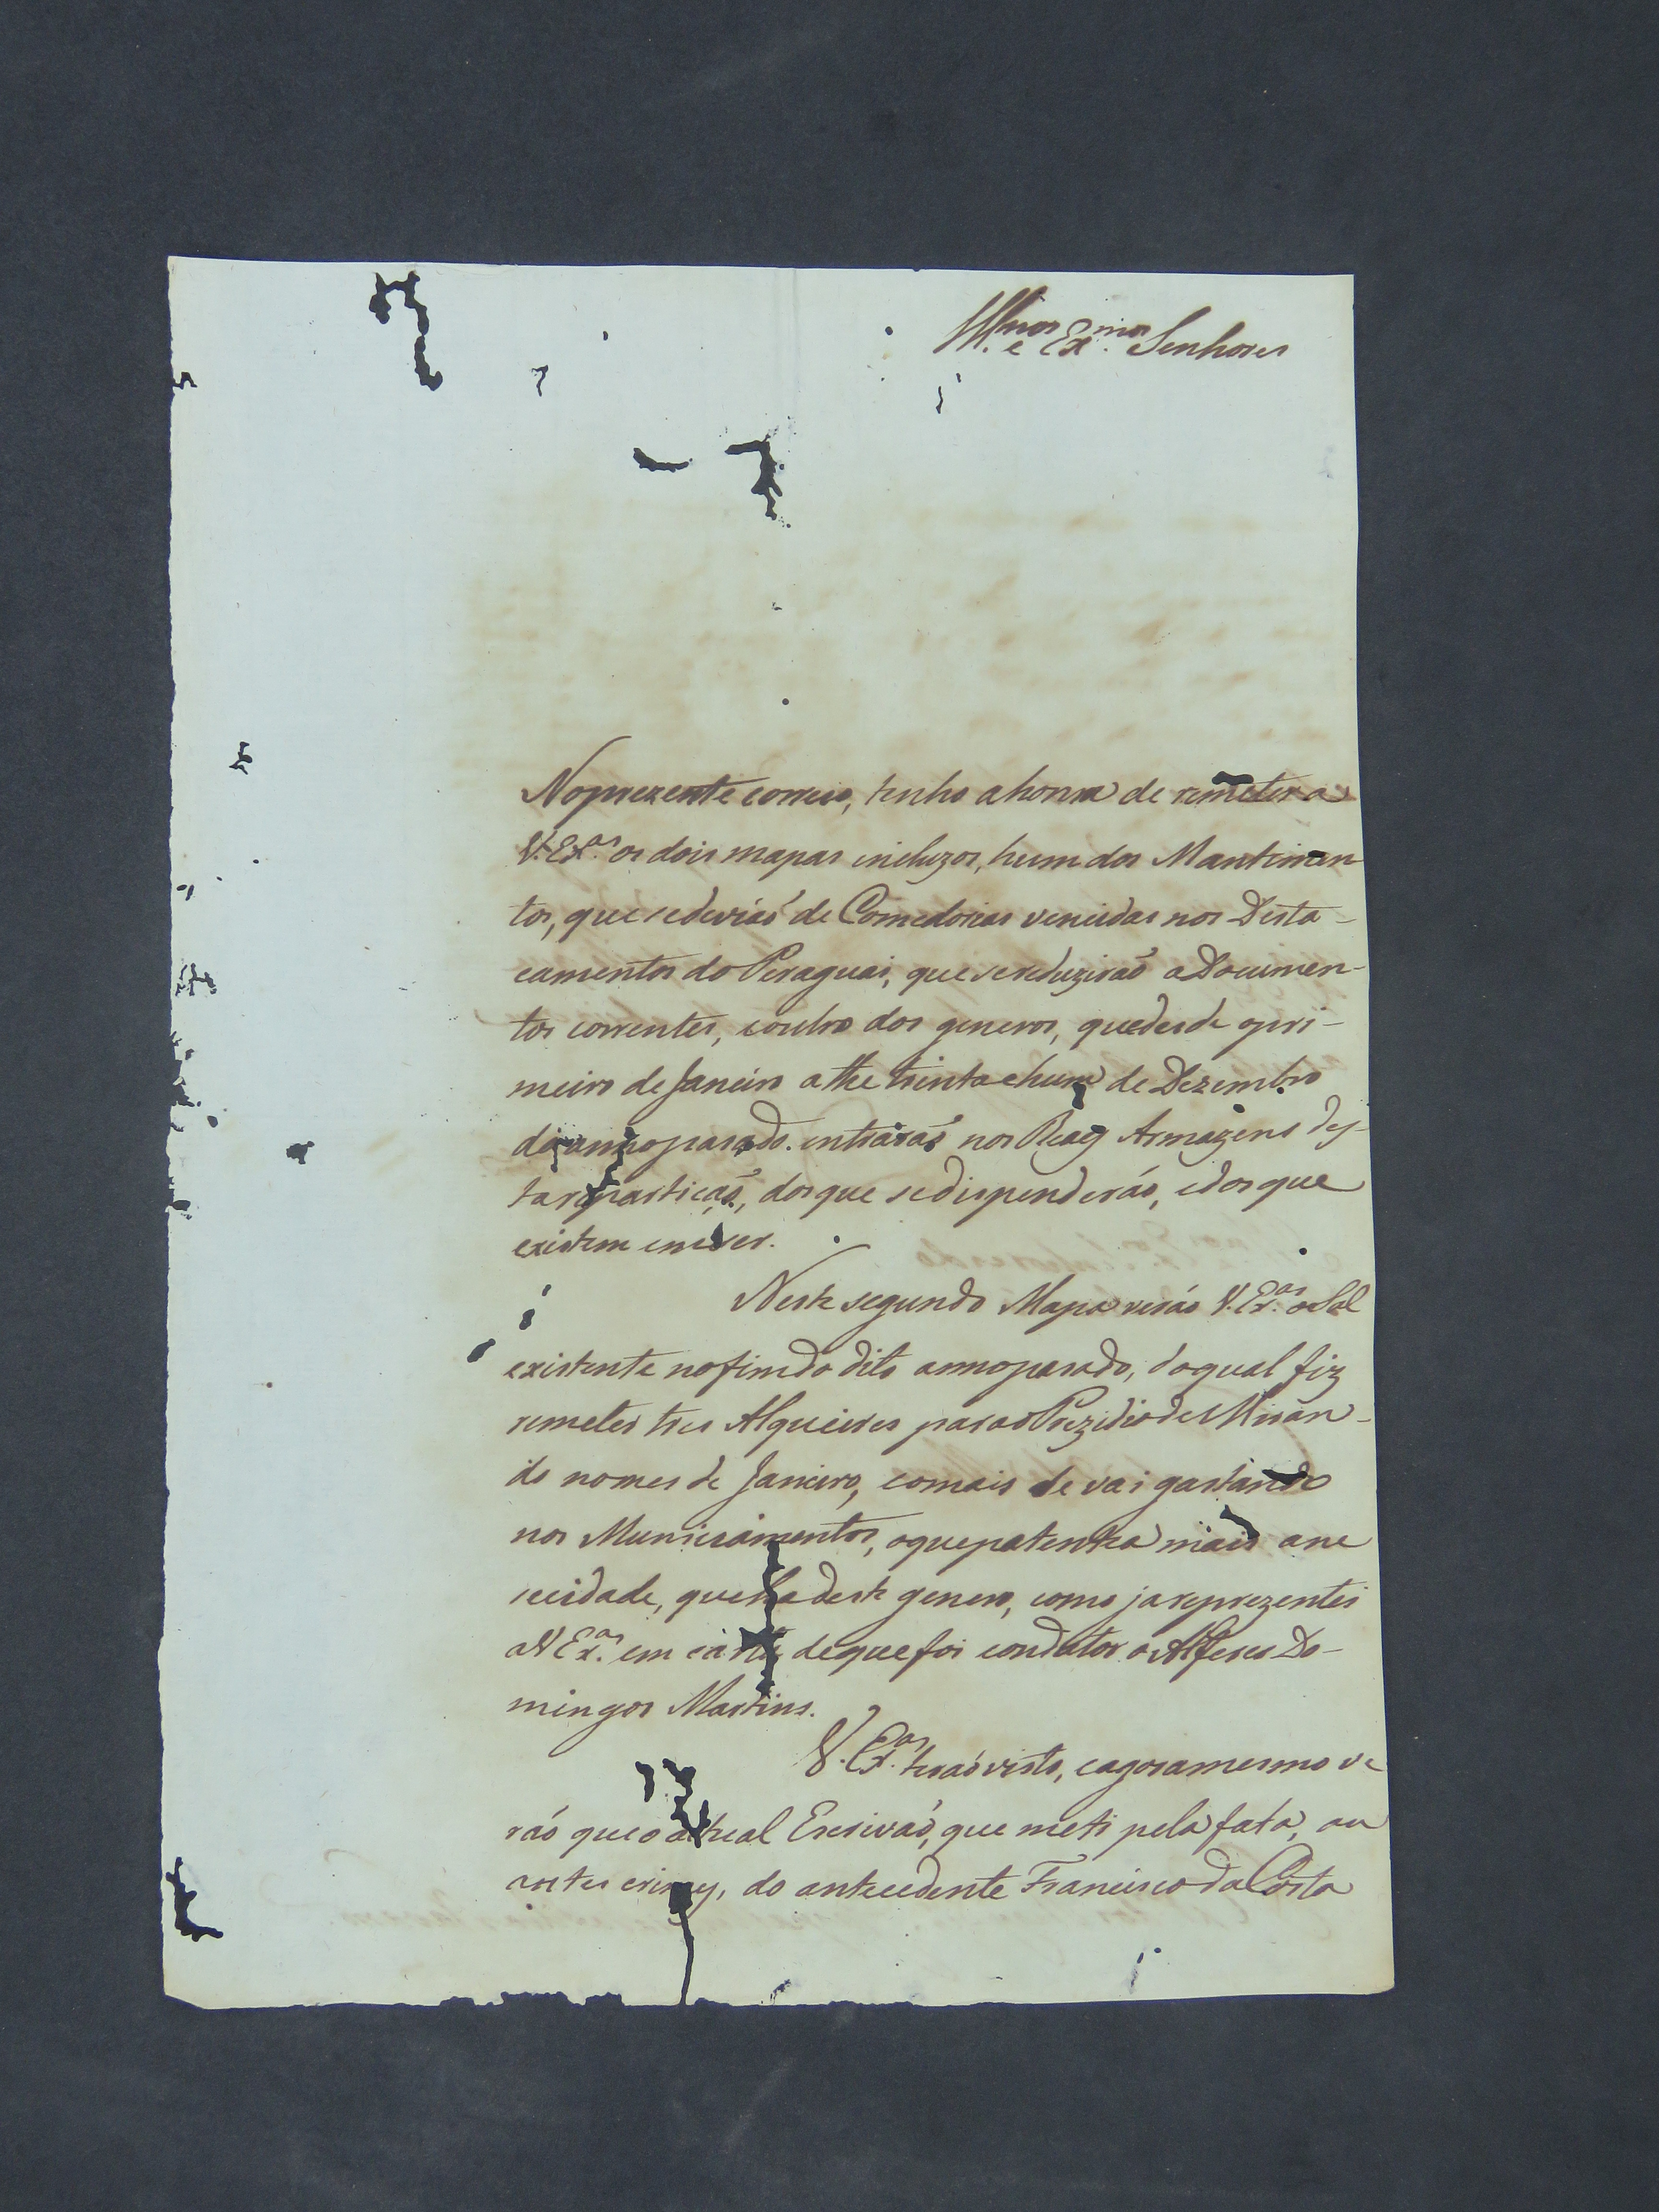 Ill.mos e Ex.mos Senhores
No prezente correio, tenho a honra de remeter a
V. Ex.as os dois mapas incluzos, hum dos Mantimen
tos, que se devião de Comedorias vencidas nos Desta-
camentos do Peraguai, que se reduzirão a Documen-
tos correntes, e outro dos generos, que desde o pri-
meiro de Janeiro athe trinta e hum de Dezembro
do anno pasado. entrárão nos Reaes Armazens des-
ta repartição, dos que se dispenderão, e dos que
existem em ser.
Neste segundo Mapa verão V. Ex.as o Sal
existente no fim do dito anno pasado, do qual fiz
remeter tres Alqueires para o Prezidio de Miran-
da no mes de Janeiro, e o mais se vai gastando
nos Municiamentos, o que patentea mais a ne
cecidade, que ha deste genero, como ja reprezentei
a V Ex.as em carta de que foi condutor o Alferes Do-
mingos Martins.
V. Ex.as terão visto, e agora mesmo ve
rão que o actual Escrivão, que meti pela fata, ou
antes crimes, do antecedente Francisco da Costa